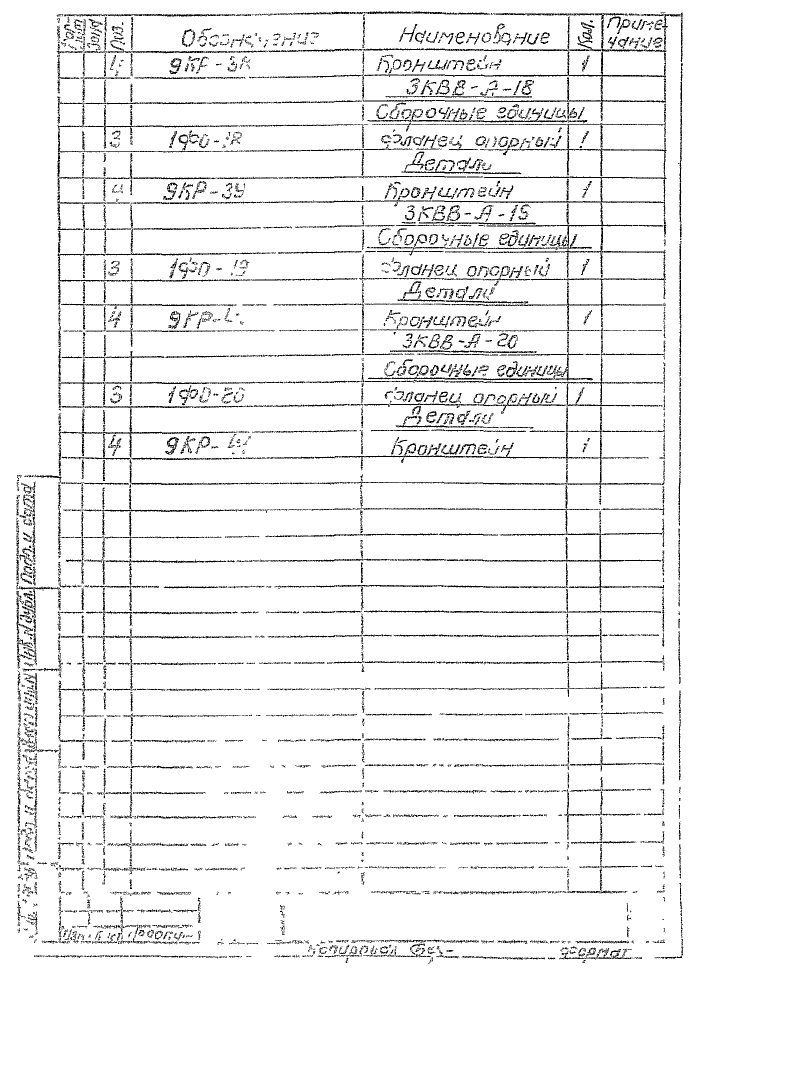 Поз. Обозначение Наименование Кол. Приме-
чание
4 9КР-38 Кронштейн 1
3КВВ-А-18
Сборочные единицы
3 1ФО-18 Фланец опорный 1
Детали
4 9КР-39 Кронштейн 1
3КВВ-А-15
Сборочные единицы
3 1ФО-19 Фланец опорный 1
Детали
4 Кронштейн 1
3КВВ-А-20
Сборочные единицы
3 1ФО-20 Фланец опорный 1
Детали
4 Кронштейн 1
Подп. и дата
Инв.№ дубл.
Взам. инв.№
Подп. и дата
Копировал
Формат